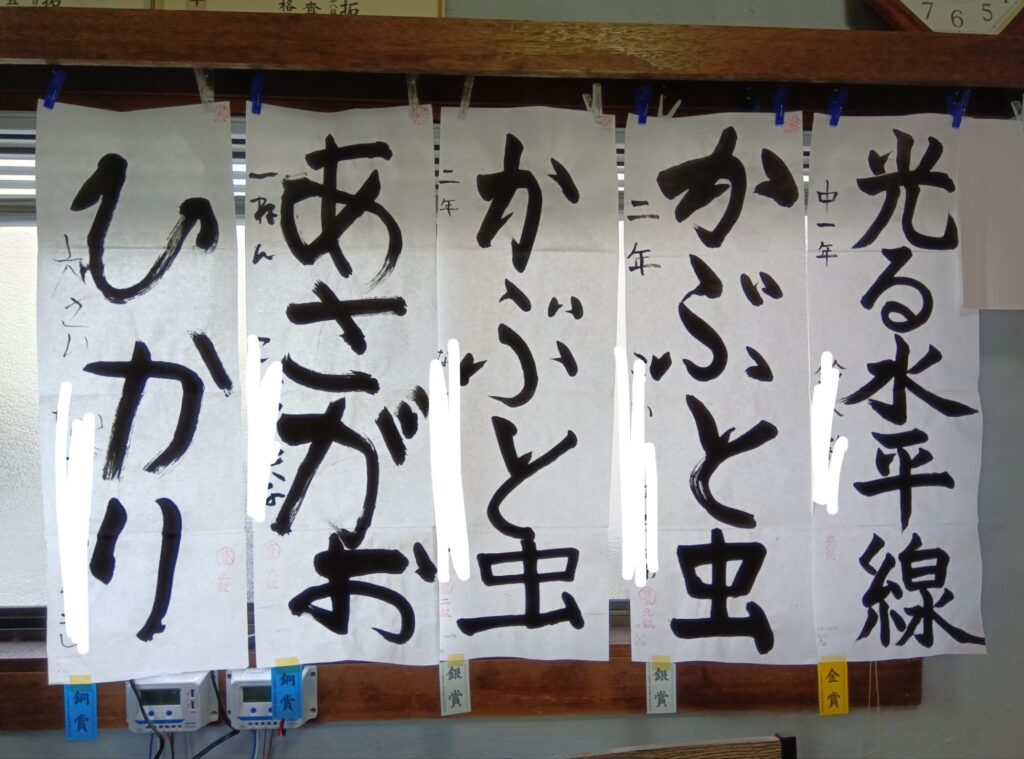 光る水平線
中一年
金賞
かぶと虫
二年
銀賞
かぶと虫
二年
銀賞
あさがお
一ねん
銅賞
ひかり
六さい
銅賞
7 6 5